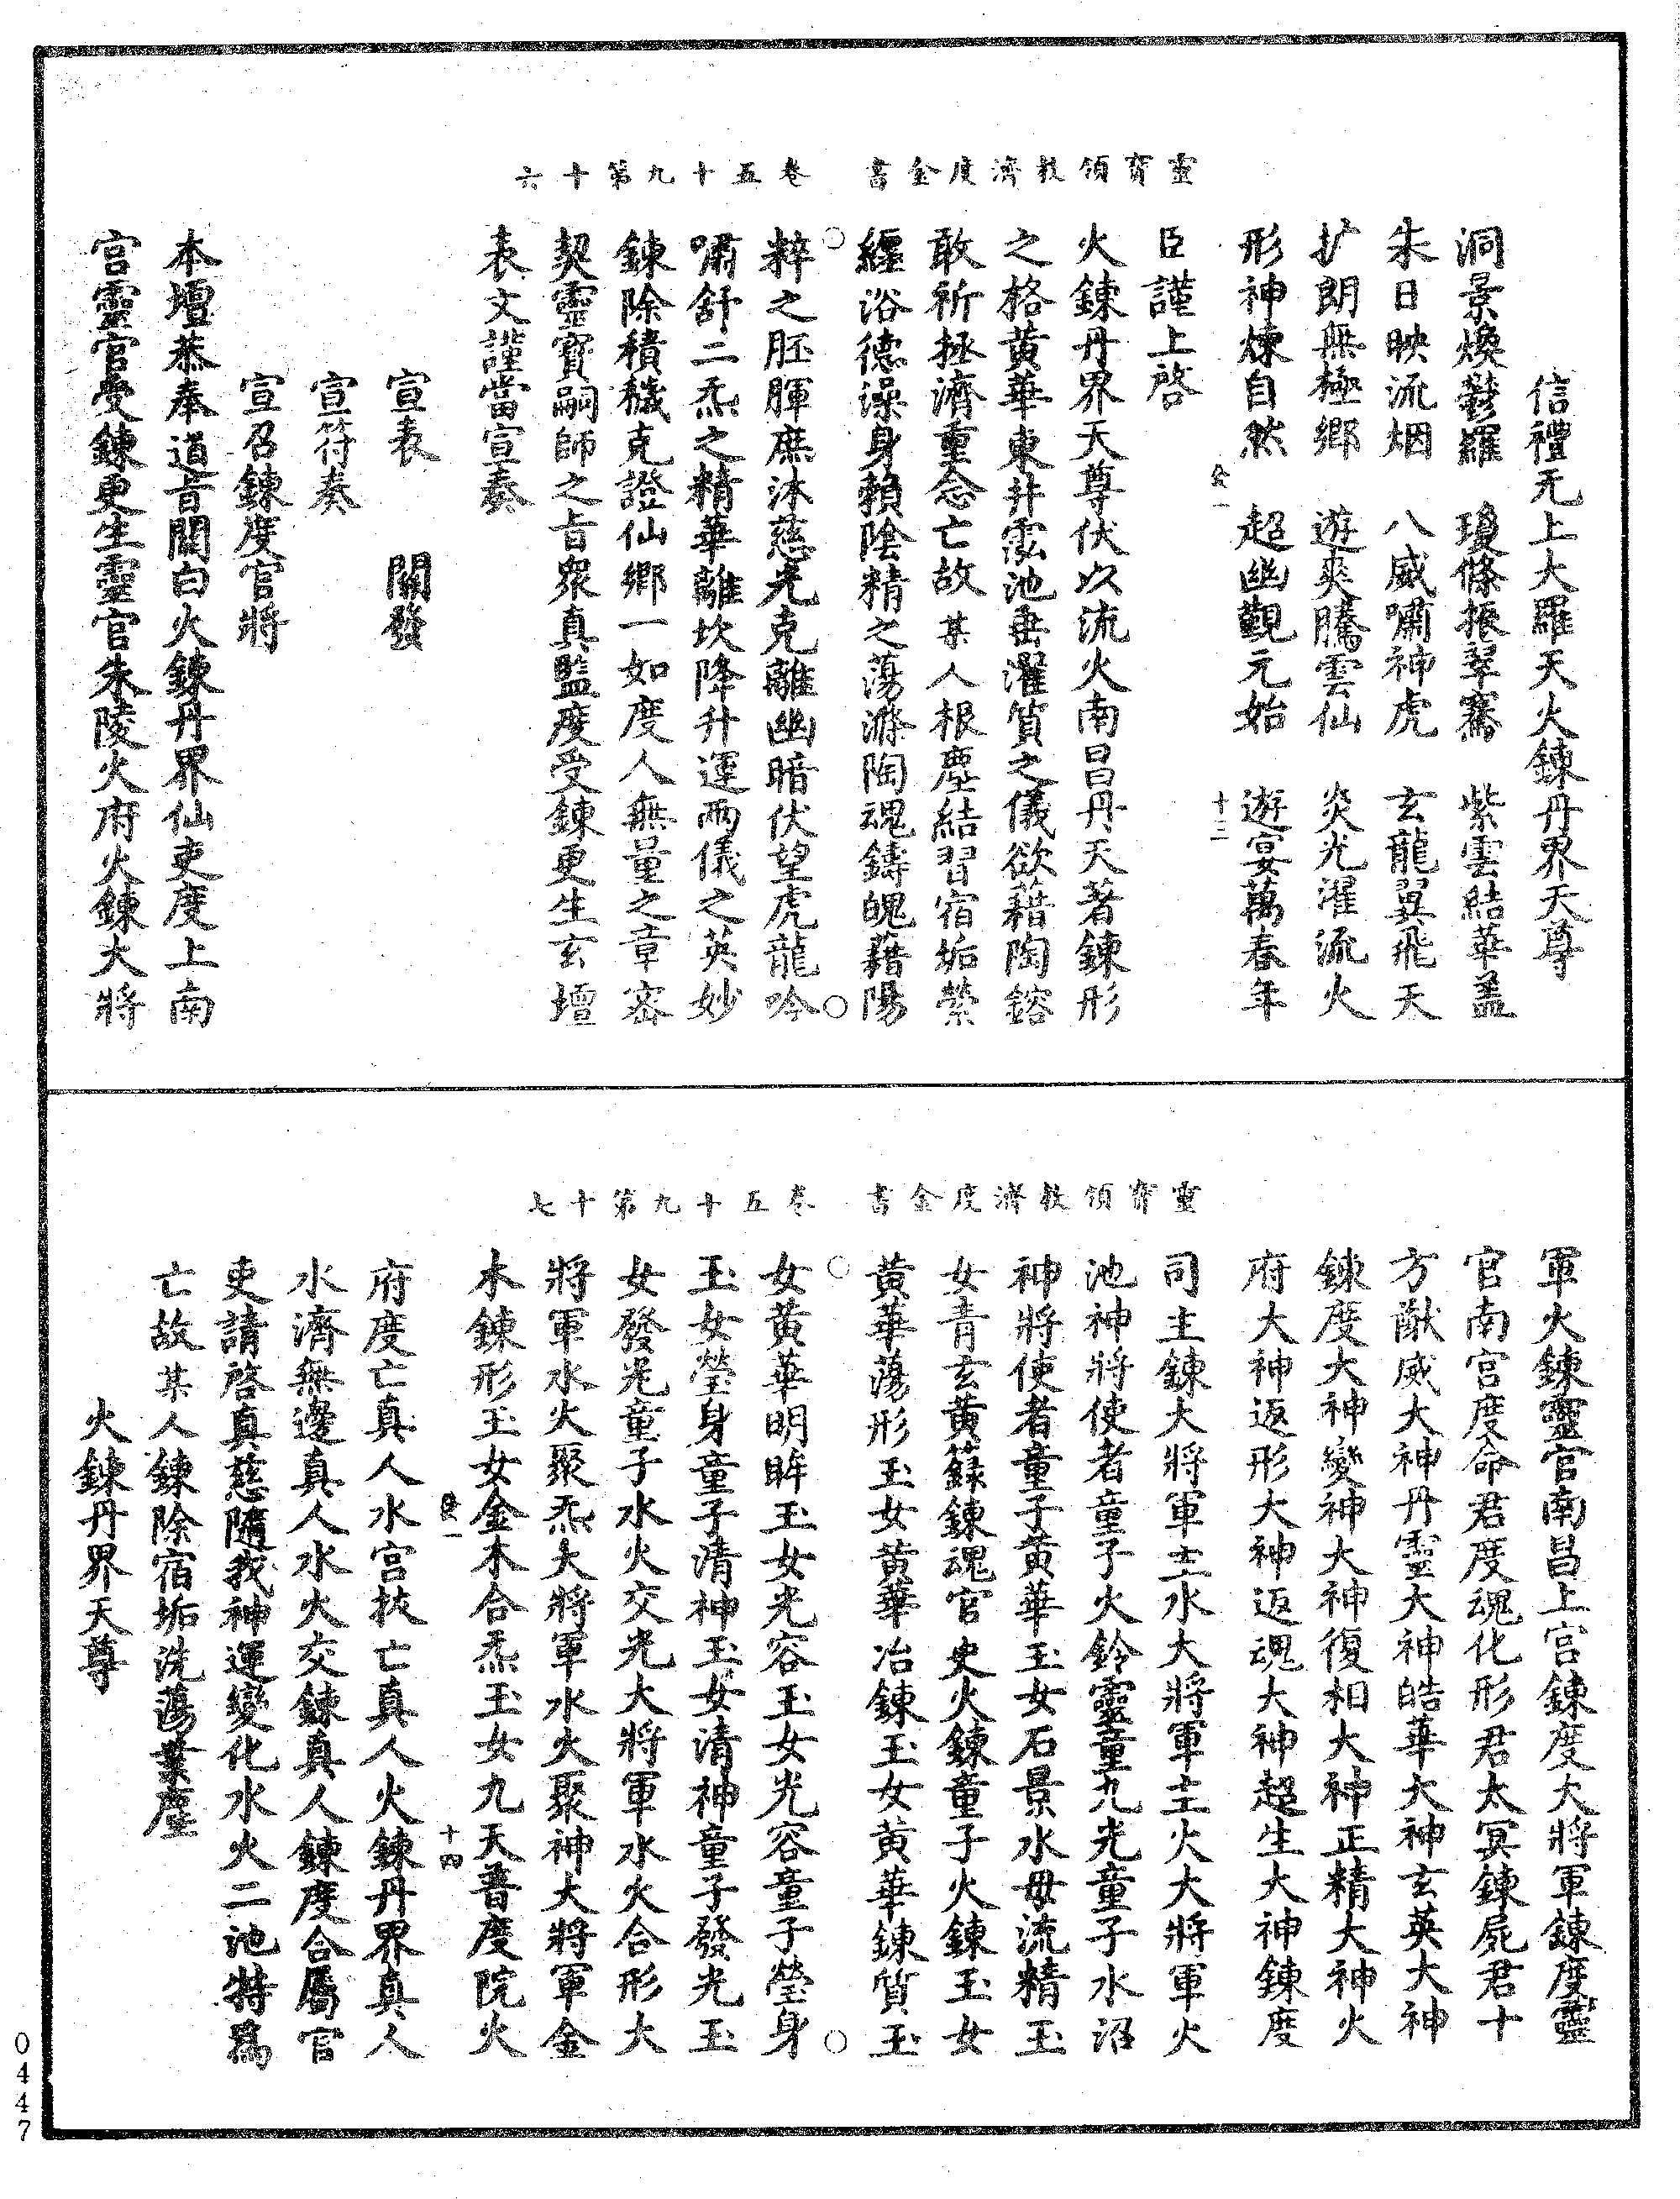 靈寶領教濟度金書　卷五十九第十六
信禮无上大羅天火鍊丹界天尊
洞景煥鬱羅　瓊條振翠騫　紫雲結華蓋
朱日映流烟　八威嘯神虎　玄龍翼飛天
扩朗無極鄉　遊爽騰雲仙　炎光濯流火
形神煉自然　超幽觀元始　遊宴萬春年
十三
臣謹上啓
火鍊丹界天尊伏以流火南昌丹天著鍊形
之格黃華東井泓池垂濯質之儀欲藉陶鎔
敢祈拯濟重念亡故某人根塵結習宿垢縈
纏浴德澡身賴陰精之蕩滌陶魂鑄魄藉陽
粹之胚腪庶沐慈光克離幽暗伏望虎龍吟
嘯舒二炁之精華離坎降升運兩儀之英妙
鍊除積穢克證仙鄉一如度人無量之章密
契靈寶嗣師之旨衆真監度受鍊更生玄壇
表文謹當宣奏
宣表　關發
宣符奏
宣召鍊度官將
本壇恭奉道旨關白火鍊丹界仙吏度上南
宮靈官受鍊更生靈官朱陵火府火鍊大將
靈寶領教濟度金書　卷五十九第十七
軍火鍊靈官南昌上宮鍊度大將軍鍊度靈
官南宮度命君度魂化形君太冥鍊屍君十
方猷威大神丹靈大神皓華大神玄英大神
鍊度大神變神大神復相大神正精大神火
府大神返形大神返魂大神超生大神鍊度
司主鍊大將軍主水大將軍主火大將軍火
池神將使者童子火鈴靈童九光童子水沼
神將使者童子黃華玉女石景水母流精玉
女青玄黃籙鍊魂官吏火鍊童子火鍊玉女
黃華蕩形玉女黃華冶鍊玉女黃華鍊質玉
女黃華明眸玉女光容玉女光容童子瑩身
玉女瑩身童子清神玉女清神童子發光玉
女發光童子水火交光大將軍水火合形大
將軍水火聚炁大將軍水火聚神大將軍金
木鍊形玉女金木合炁玉女九天普度院火
十四
府度亡真人水宮拔亡真人火鍊丹界真人
水濟無邊真人水火交鍊真人鍊度合屬官
吏請啓真慈隨我神運變化水火二池特爲
亡故某人鍊除宿垢洗蕩業塵
火鍊丹界天尊
0447